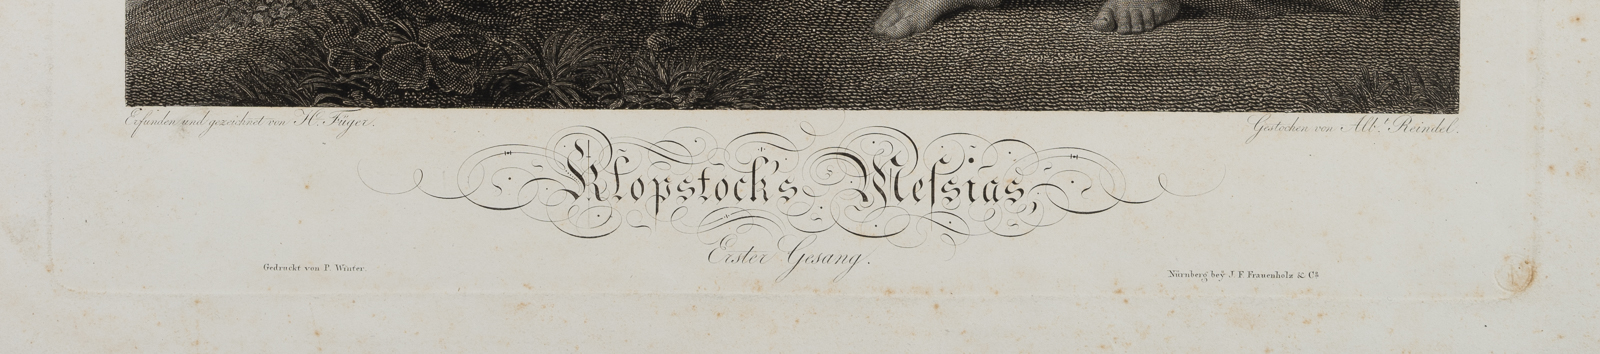 Erfunden und gezeichnet von H. Füger.
Gestochen von Alb.t Reindel.
Klopstock's Meſsias,
Erster Gesang.
Gedruckt von P. Winter.
Nürnberg beÿ J. F. Frauenholz & Co.